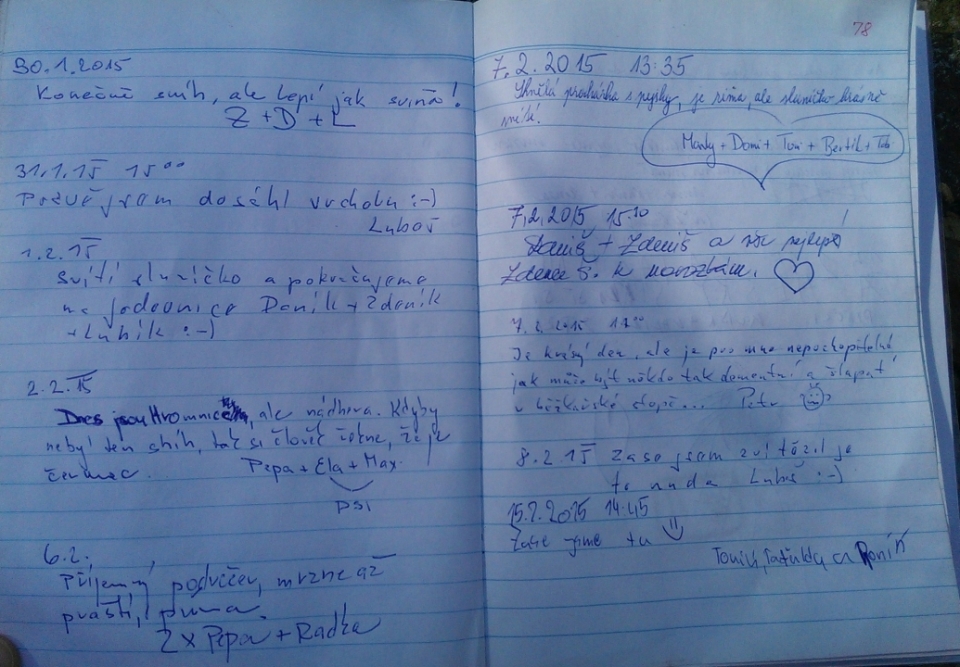 30.1.2015
Konečně sníh, ale lepí jak sviňa!
Z + D + L
31.1.15 15⁰⁰
jsem dosáhl vrcholu :-)
Luboš
1.2.15
Svítí sluníčko a pokračujeme
na Javornice Daník + Zdeník
+ Lubík :-)
2.2.15
Dnes jsou Hromnice, ale nádhera. Kdyby
nebyl ten sníh, tak si člověk řekne, že je
červenec. Pepa + Ela + Max.
PSI
6.2.
Příjemný podvečer, mrzne až
praští, prima.
2x Pepa + Radka
78
7.2.2015 13:35
procházka s pejsky, je zima, ale sluníčko krásně
+ Domi + Toni + Bertík +
7.2.2015 15¹⁰
+ Zdeniš a vše nejlepší!
Zdence Š. k narozkám.
7.2.2015
Je krásný den, ale je pro mne nepochopitelné
jak může být někdo tak dementní a šlapat
v běžkařské stopě... Petr
8.2.15 Zase jsem zvítězil je
to nuda Luboš :-)
15.2.2015 14:45
Zase jsme tu
a Ronín